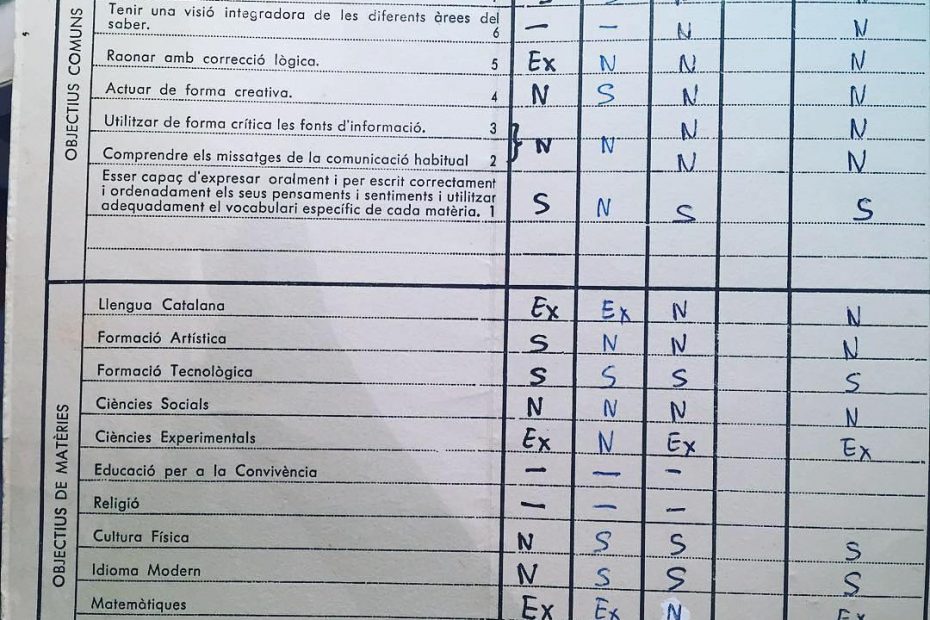 Tenir una visió integradora de les diferents àrees del
saber. 6 — — N N
Raonar amb correcció lògica. 5 Ex N N N
Actuar de forma creativa. 4 N S N N
Utilitzar de forma crítica les fonts d'informació. 3 } N N N N
Comprendre els missatges de la comunicació habitual 2 N N
Esser capaç d'expresar oralment i per escrit correctament
i ordenadament els seus pensaments i sentiments i utilitzar
adequadament el vocabulari específic de cada matèria. 1 S N S S
OBJECTIUS COMUNS
Llengua Catalana Ex Ex N N
Formació Artística S N N N
Formació Tecnològica S S S S
Ciències Socials N N N N
Ciències Experimentals Ex N Ex Ex
Educació per a la Convivència — — —
Religió — — —
Cultura Física N S S S
Idioma Modern N S S S
Matemàtiques Ex Ex N Ex
OBJECTIUS DE MATÈRIES